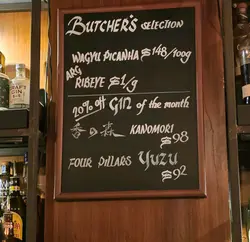 BUTCHER'S SELECTION
WAGYU PICANHA $148/100g
ARG
RIBEYE $1/g
20% off GIN of the month
香の森 KANOMORI
$98
FOUR PILLARS YUZU
$92
CRAFT
GIN